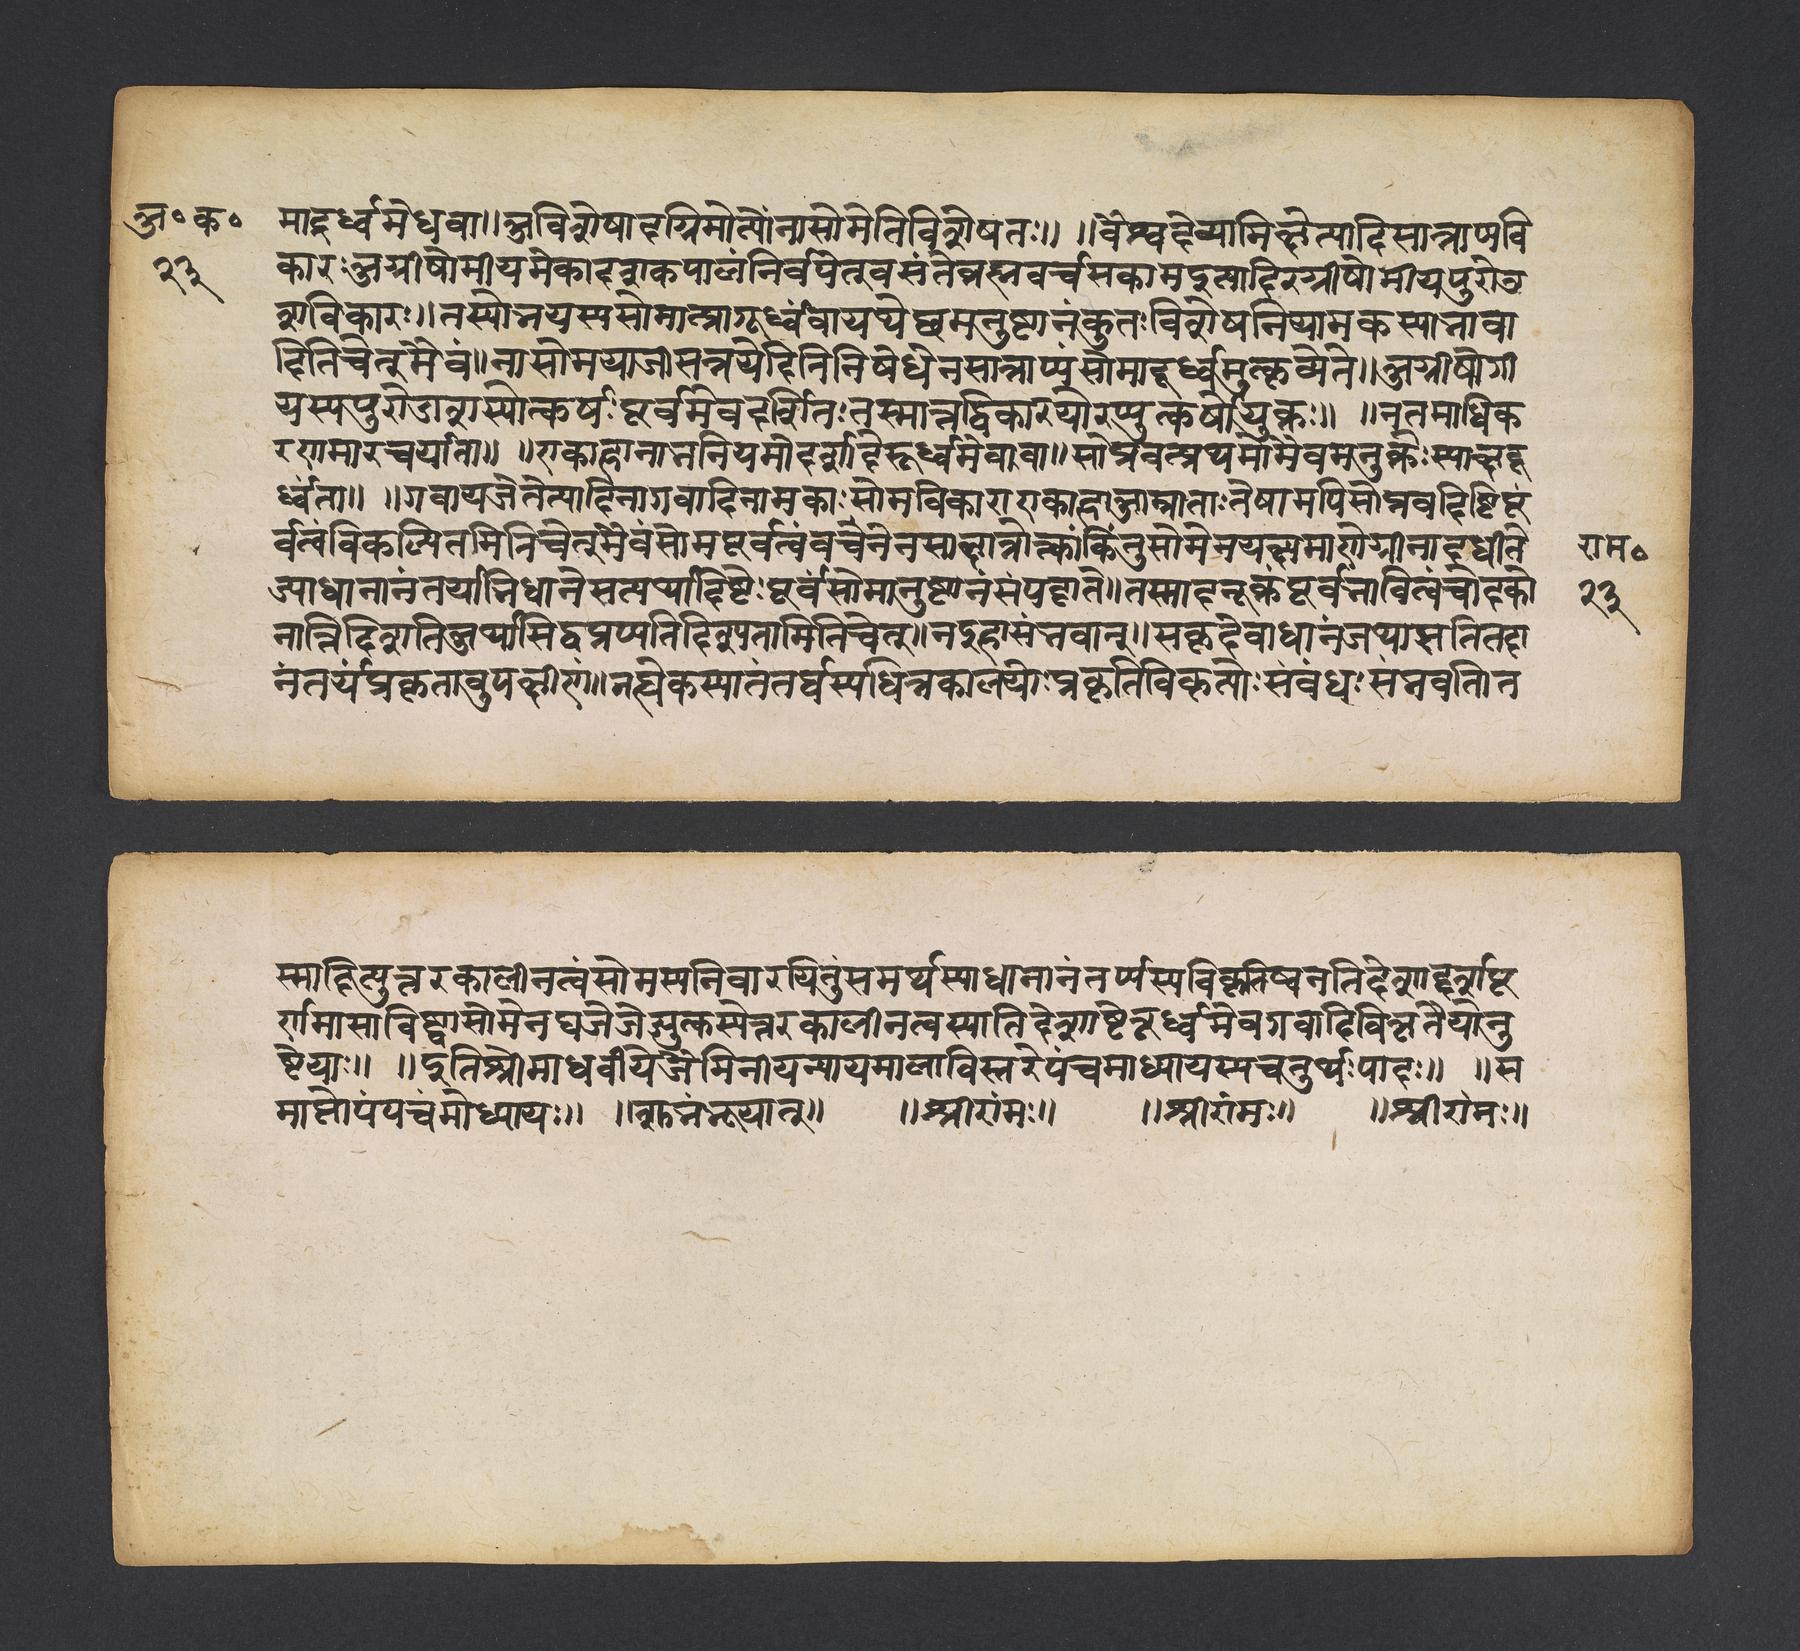 अ॰ क॰
२३
मादूर्ध्वमेधवा॥अविशेषादग्निमोत्योनासोमेतिविशेषतः॥ ॥वैश्वदेव्यामिक्षेत्यादिसान्नाय्यवि
कारःअग्नीषोमीयमेकादशकपालंनिर्वपेत्‌वसंतेब्रह्मवर्चसकामइत्यादिरग्नीषोमीयपुरोडा
शविकारः॥तस्योभयस्यसोमात्प्रागूर्ध्वंवायथेछमनुष्टानंकुतःविशेषनियामकस्याभावा
दितिचेत्‌मैवं॥नासोमयाजीसन्नयेदितिनिषेधेनसान्नाय्यंसोमादूर्ध्वमुत्कृष्यते॥अग्नीषोमी
यस्यपुरोडाशस्योत्कर्षःपूर्वमेवदर्शितःतस्मात्तद्विकारयोरप्युत्कर्षोयुक्तः॥ ॥नतमाधिक
रणमारचर्याता॥ ॥एकाहानाननियमोदर्शादेस्तूर्ध्वमेवावा॥सोर्प्रवत्प्रथमोमैवमनुक्तेःस्यात्तदू
र्ध्वता॥ ॥गवायजेतेत्यादिनागवादिनामकाःसोमविकाराएकाहाआम्नाताःतेषामपिसोमवदिष्टिपू
र्वत्वंविकल्पितमितिचेत्‌मैवंसोमपूर्वत्वंवचनेनसाक्षान्नोत्कांकिंतुसोमेनयक्ष्यमाणोग्नीनादधीते
त्याधानानंतर्याभिधानेसत्यर्थादिष्टेःपूर्वंसोमानुष्टानंसंपद्यते॥तस्मादनूक्तंपूर्वभावित्वंचोदको
नातिदिशतिअर्थासिद्वमप्यतिदिश्यतामितिचेत्‌॥नदुहासंभवात्‌॥सकृदेवाधानंजप्यासतितदा
नंतर्यंप्रकृतावुपक्षीणं॥नह्येकस्यानंतर्यस्यभिन्नकालयोःप्रकृतिविकृत्योःसंबंधःसंभवति।त
राम॰
२३
स्मादिष्ट्युत्तरकालीनत्वंसोमस्यनिवारयितुंसमर्थस्याधानानंतर्यस्यविकृतिष्वनतिदेशाद्दर्शपू
र्णमासाविष्ट्वासोमेनयजेतेत्युत्कस्योत्तरकालीनत्वस्यातिदेशादिष्टेरूर्ध्वमेवगवादिविकृतयोनु
ष्टेयाः॥ ॥इतिश्रीमाधवीयेजैमिनीयन्यायमालाविस्तरेपंचमाध्यायस्यचतुर्थःपादः॥ ॥स
माप्तोयंपंचमोध्यायः॥ ॥शुभंभूयात्‌॥ ॥श्रीरामः॥ ॥श्रीरामः॥ ॥श्रीरामः॥